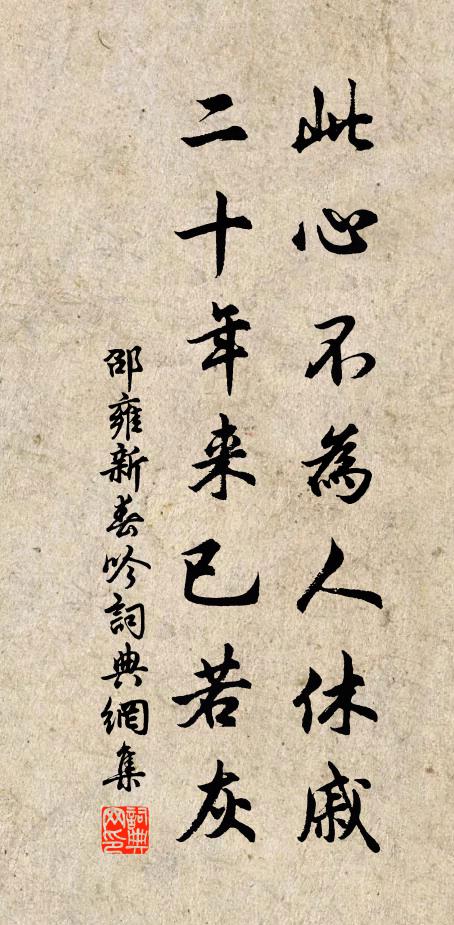 此心不為人休戚
二十年来已若灰
邵雍新春吟詞典網集
詞典網印